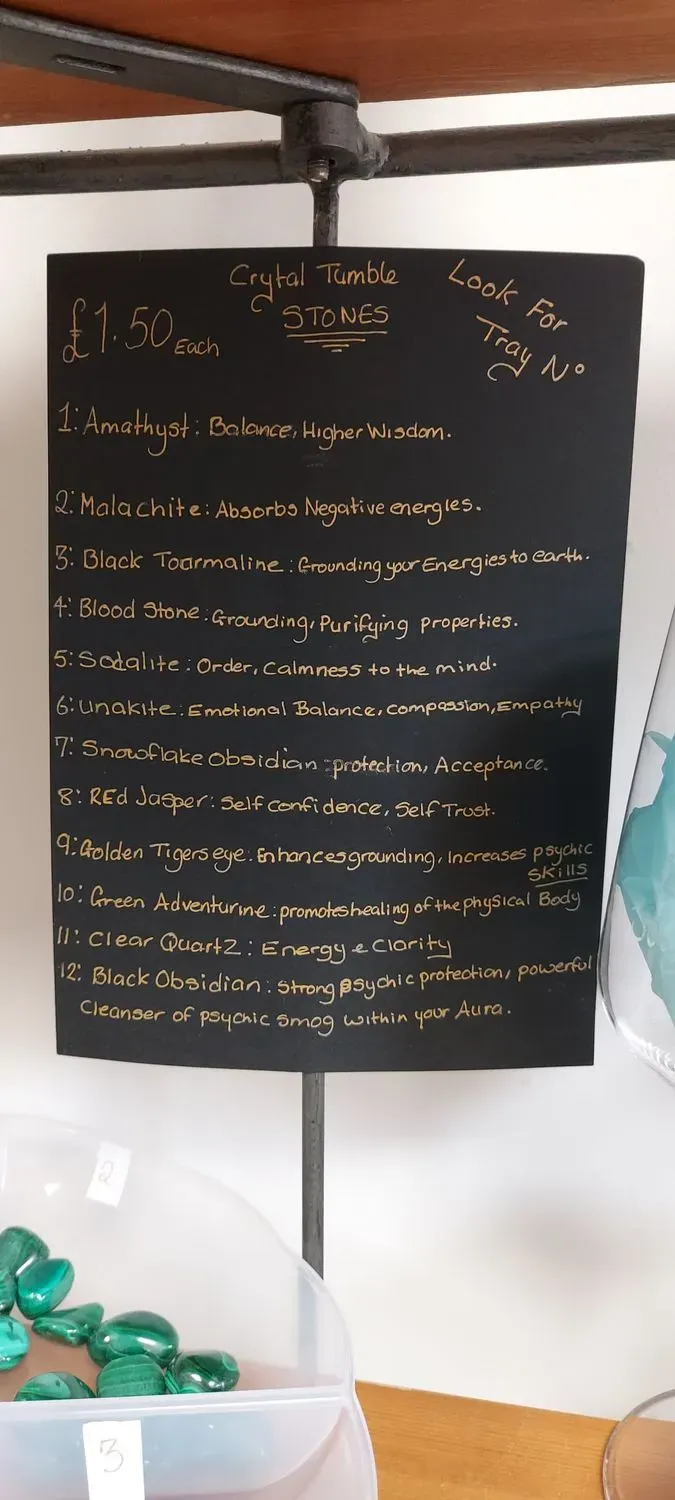 Crytal Tumble
STONES
£1.50 Each
Look For
Tray Nº
1: Amathyst: Balance, Higher Wisdom.
2: Malachite: Absorbs Negative energies.
3: Black Toarmaline: Grounding your Energies to earth.
4: Blood Stone: Grounding, Purifying properties.
5: Sodalite: Order, Calmness to the mind.
6: Unakite: Emotional Balance, compassion, Empathy
7: Snowflake Obsidian protection, Acceptance.
8: REd Jasper: Self confidence, Self Trust.
9: Golden Tigers eye: Enhances grounding, Increases psychic
skills
10: Green Adventurine: promotes healing of the physical Body
11: Clear Quartz: Energy & Clarity
12: Black Obsidian: strong psychic protection, powerful
Cleanser of psychic smog within your Aura.
2
3